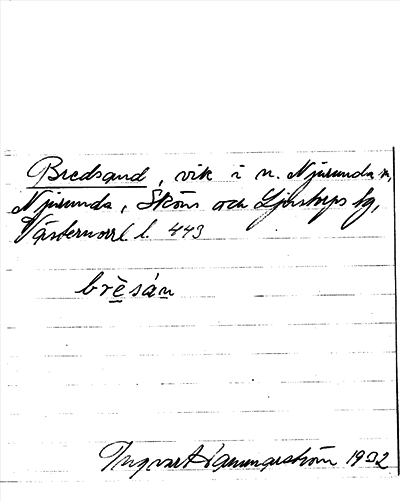 Bredsand, vik i n. Njurunda sn,
Njurunda, Sköns och Ljustorps tg,
Västernorrl l. 443
brèsán
Ingvar Hammarström 1932